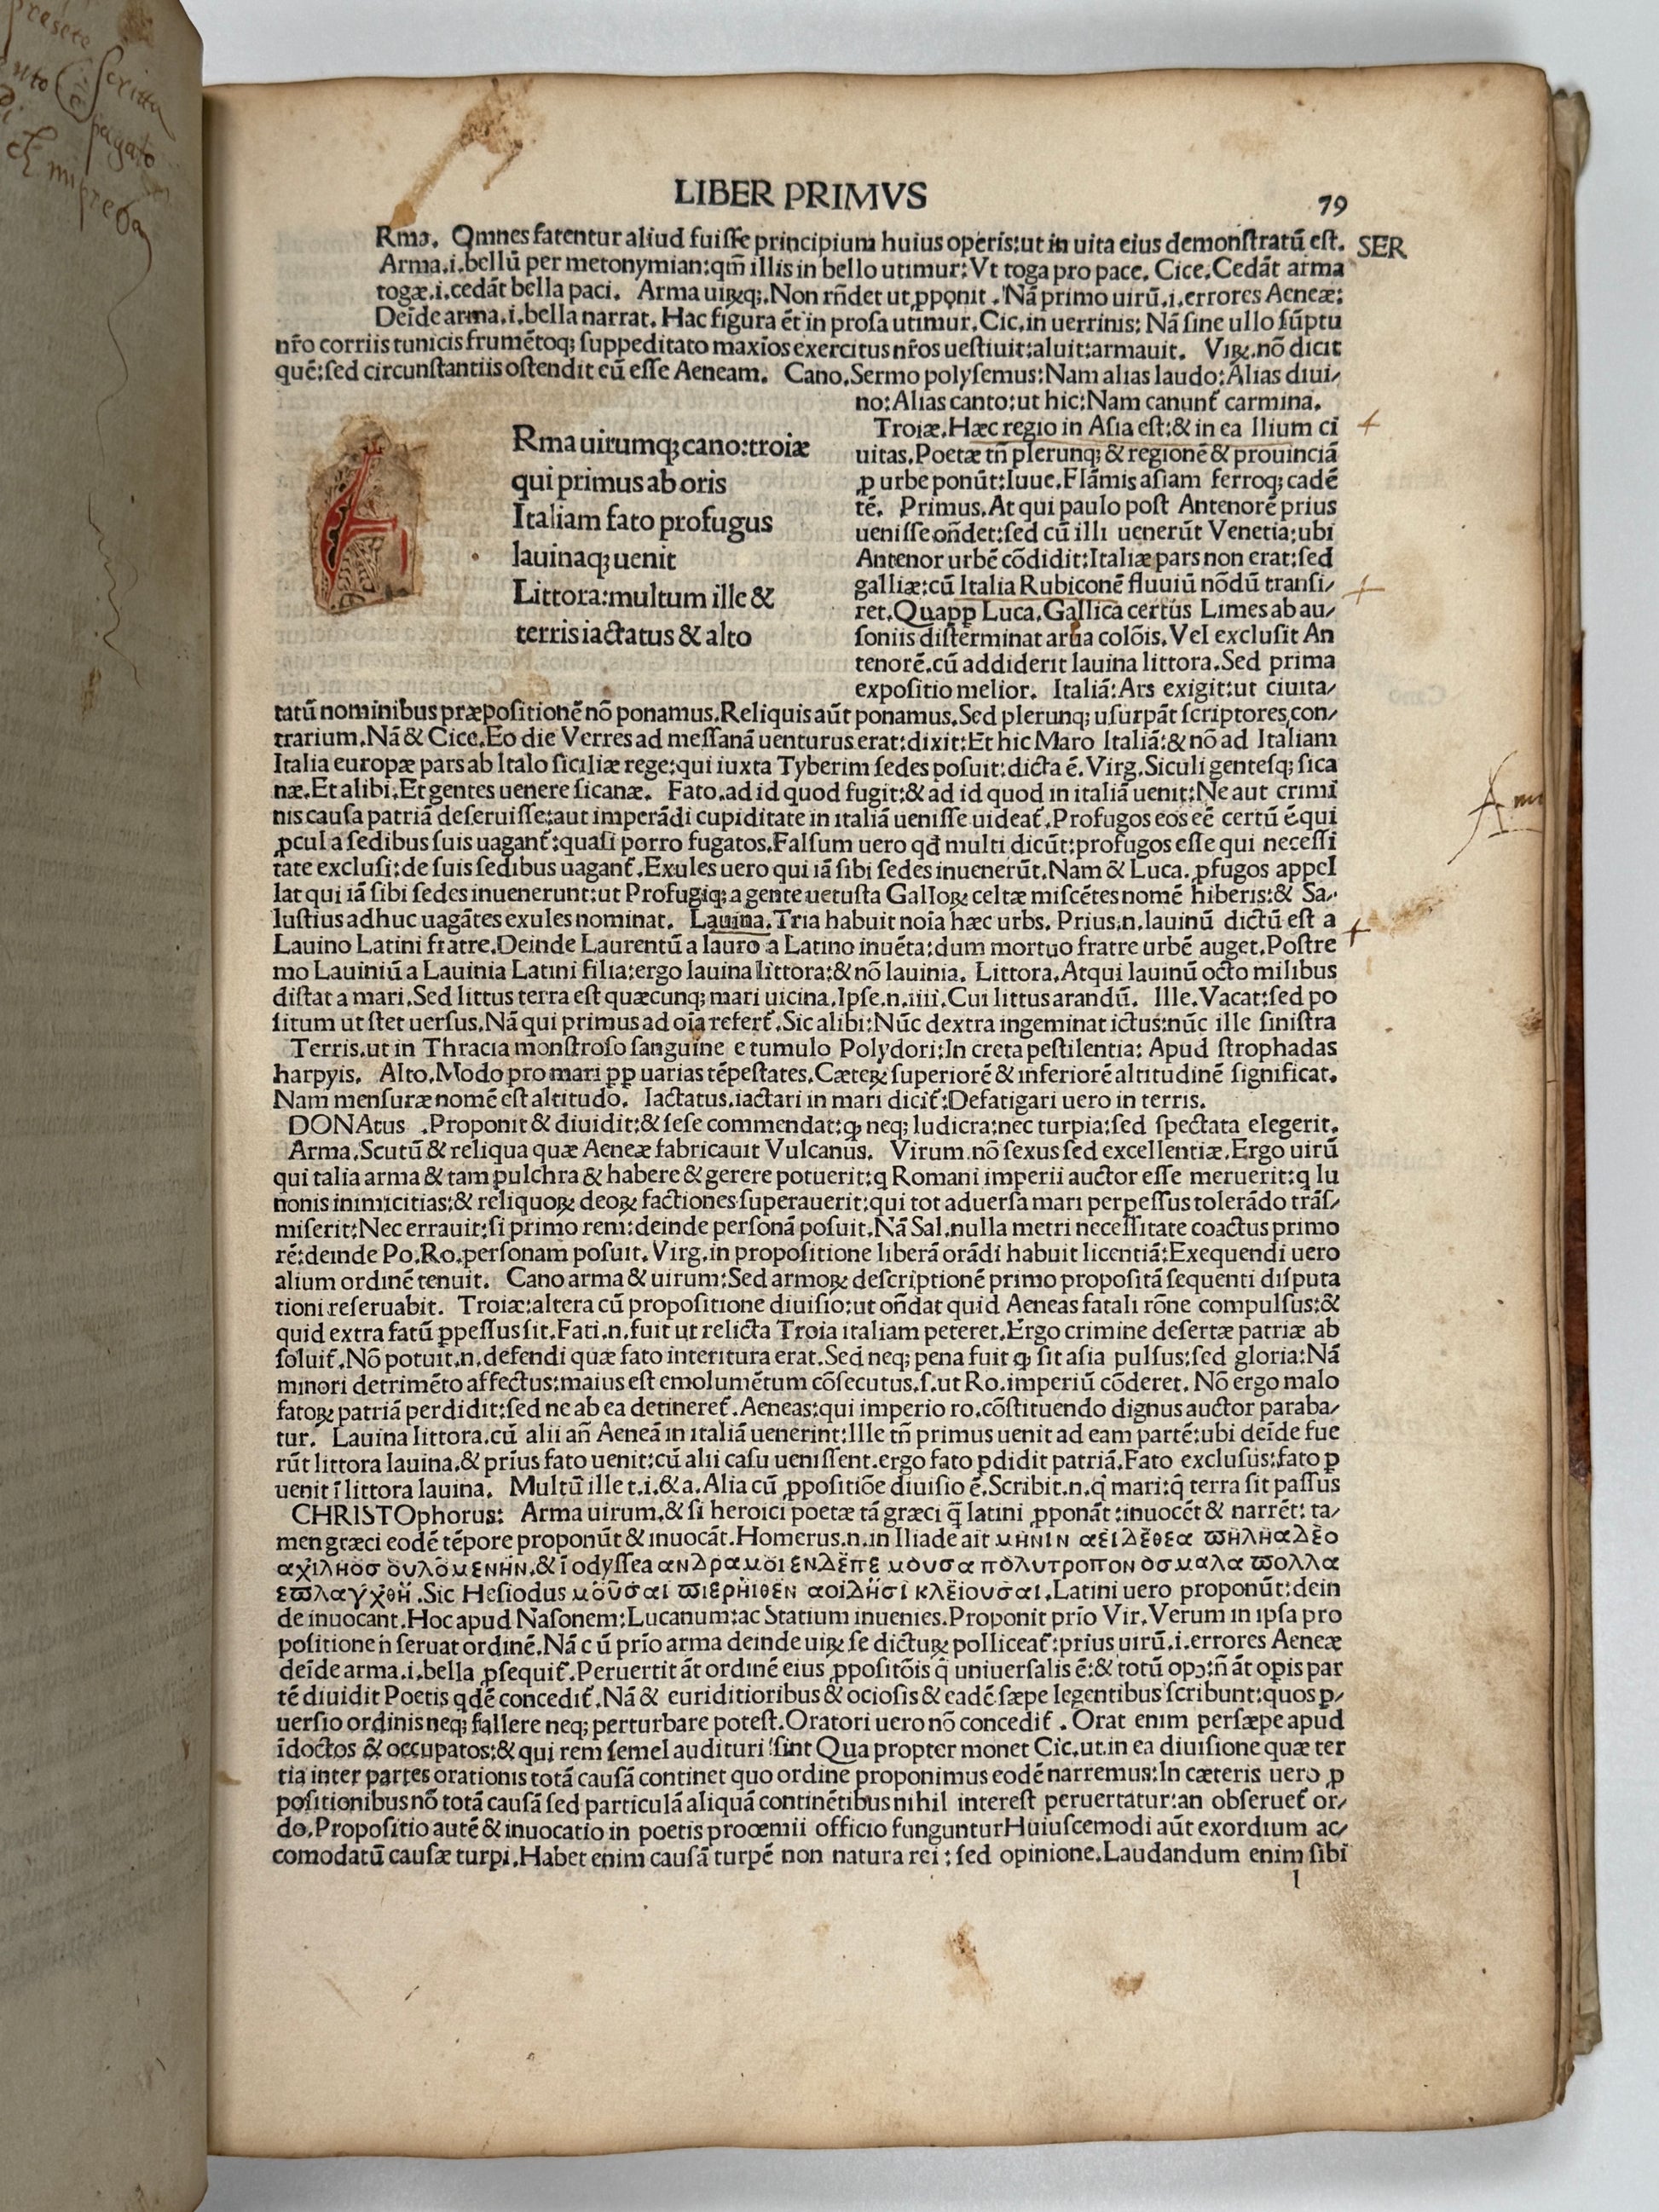 presete
scritta
pagato
LIBER PRIMVS
79
Rma. Omnes fatentur aliud fuisse principium huius operis:ut in uita eius demonstratū est. SER
Arma.i.bellū per metonymian:qm̄ illis in bello utimur:Vt toga pro pace. Cice.Cedāt arma
togæ.i.cedāt bella paci. Arma uiꝝq;.Non rñdet ut ꝓponit. Nā primo uirū.i.errores Aeneæ:
Deīde arma.i.bella narrat. Hac figura ēt in prosa utimur. Cic.in uerrinis: Nā sine ullo sūptu
nr̄o corriis tunicis frumētoq; suppeditato maxīos exercitus nr̄os uestiuit:aluit:armauit. Viꝝ.nō dicit
quē:sed circunstantiis ostendit eū esse Aeneam. Cano.Sermo polysemus:Nam alias laudo:Alias diui/
no:Alias canto:ut hic:Nam canunt̄ carmina.
Rma uirumq; cano:troiæ
qui primus ab oris
Italiam fato profugus
lauinaq; uenit
Littora:multum ille &
terris iactatus & alto
Troiæ.Hæc regio in Asia est:& in ea Ilium ci
uitas.Poetæ tñ plerunq; & regionē & prouinciā
ꝓ urbe ponūt:Iuue.Flāmis asiam ferroq; cadē
tē. Primus.At qui paulo post Antenorē prius
uenisse oñdet:sed cū illi uenerūt Venetia:ubi
Antenor urbē cōdidit:Italiæ pars non erat:sed
galliæ:cū Italia Rubiconē fluuiū nōdū transi/
ret.Quapp̄ Luca.Gallica certus Limes ab au/
soniis disterminat arua colōis.Vel exclusit An
tenorē.cū addiderit lauina littora.Sed prima
expositio melior. Italiā:Ars exigit:ut ciuita/
tatū nominibus præpositionē nō ponamus.Reliquis aūt ponamus.Sed plerunq; usurpāt scriptores con/
trarium.Nā & Cice.Eo die Verres ad messanā uenturus erat:dixit:Et hic Maro Italiā:& nō ad Italiam
Italia europæ pars ab Italo siciliæ rege:qui iuxta Tyberim sedes posuit:dicta ē.Virg.Siculi gentesq; sica
næ.Et alibi.Et gentes uenere sicanæ. Fato.ad id quod fugit:& ad id quod in italiā uenit:Ne aut crimi
nis causa patriā deseruisse:aut imperādi cupiditate in italiā uenisse uideat̄.Profugos eos eē certū ē.qui
ꝓcul a sedibus suis uagant̄:quasi porro fugatos.Falsum uero qđ multi dicūt:profugos esse qui necessi
tate exclusi:de suis sedibus uagant̄.Exules uero qui iā sibi sedes inuenerūt.Nam & Luca.ꝓfugos appel
lat qui iā sibi sedes inuenerunt:ut Profugiq; a gente uetusta Galloꝝ celtæ miscētes nomē hiberis:& Sa/
lustius adhuc uagātes exules nominat. Lauina.Tria habuit noīa hæc urbs. Prius.n.lauinū dictū est a
Lauino Latini fratre.Deinde Laurentū a lauro a Latino inuēta:dum mortuo fratre urbē auget.Postre
mo Lauiniū a Lauinia Latini filia:ergo lauina littora:& nō lauinia. Littora.Atqui lauinū octo milibus
distat a mari.Sed littus terra est quæcunq; mari uicina.Ipse.n.iiii.Cui littus arandū. Ille.Vacat:sed po
situm ut stet uersus.Nā qui primus ad oīa refert̄.Sic alibi:Nūc dextra ingeminat ictus:nūc ille sinistra
Terris.ut in Thracia monstroso sanguine e tumulo Polydori:In creta pestilentia: Apud strophadas
harpyis. Alto.Modo pro mari pp̄ uarias tēpestates.Cæteꝝ superiorē & inferiorē altitudinē significat.
Nam mensuræ nomē est altitudo. Iactatus.iactari in mari dicit̄:Defatigari uero in terris.
DONAtus .Proponit & diuidit:& sese commendat:ꝙ neq; ludicra:nec turpia:sed spectata elegerit.
Arma.Scutū & reliqua quæ Aeneæ fabricauit Vulcanus. Virum.nō sexus sed excellentiæ.Ergo uirū
qui talia arma & tam pulchra & habere & gerere potuerit:q Romani imperii auctor esse meruerit:q Iu
nonis inimicitias:& reliquoꝝ deoꝝ factiones superauerit:qui tot aduersa mari perpessus tolerādo trās/
miserit:Nec errauit:si primo rem:deinde personā posuit.Nā Sal.nulla metri necessitate coactus primo
rē:deinde Po.Ro.personam posuit.Virg.in propositione liberā orādi habuit licentiā:Exequendi uero
alium ordinē tenuit. Cano arma & uirum:Sed armoꝝ descriptionē primo propositā sequenti disputa
tioni reseruabit. Troiæ:altera cū propositione diuisio:ut oñdat quid Aeneas fatali rōne compulsus:&
quid extra fatū ꝑpessus sit.Fati.n.fuit ut relicta Troia italiam peteret.Ergo crimine desertæ patriæ ab
soluit̄.Nō potuit.n.defendi quæ fato interitura erat.Sed neq; pena fuit ꝙ sit asia pulsus:sed gloria:Nā
minori detrimēto affectus:maius est emolumētum cōsecutus.s.ut Ro.imperiū cōderet. Nō ergo malo
fatoꝝ patriā perdidit:sed ne ab ea detineret̄.Aeneas:qui imperio ro.cōstituendo dignus auctor paraba/
tur. Lauina littora.cū alii añ Aeneā in italiā uenerint:Ille tñ primus uenit ad eam partē:ubi deīde fue
rūt littora lauina.& prius fato uenit:cū alii casu uenissent.ergo fato ꝑdidit patriā.Fato exclusus:fato ꝑ
uenit ī littora lauina. Multū ille t.i.& a.Alia cū ꝓpositiōe diuisio ē.Scribit.n.q̄ mari:q̄ terra sit passus
CHRISTOphorus: Arma uirum.& si heroici poetæ tā græci q̄ latini ꝓponāt:inuocēt & narrēt: ta/
men græci eodē tēpore proponūt & inuocāt.Homerus.n.in Iliade ait μηνιν αειδεθεα πηληαδεο
αχιληοσ ουλομενην.& ī odyssea ανδραμοι ενδεπε μουσα πολυτροπον οσ μαλα πολλα
επλαγχθη.Sic Hesiodus μουσαι πιερηιθεν αοιδησι κλειουσαι.Latini uero proponūt:dein
de inuocant.Hoc apud Nasonem:Lucanum:ac Statium inuenies.Proponit prīo Vir.Verum in ipsa pro
positione ñ seruat ordinē.Nā cū prīo arma deinde uiꝝ se dictuꝝ polliceat̄:prius uirū.i.errores Aeneæ
deīde arma.i.bella ꝓsequit̄.Peruertit āt ordinē eius ꝓpositōis q̄ uniuersalis ē:& totū opꝰ:ñ āt opis par
tē diuidit Poetis qdē concedit̄.Nā & euriditioribus & ociosis & eadē sæpe legentibus scribunt:quos ꝑ/
uersio ordinis neq; fallere neq; perturbare potest.Oratori uero nō concedit̄. Orat enim persæpe apud
īdoctos & occupatos:& qui rem semel audituri sint Qua propter monet Cic.ut.in ea diuisione quæ ter
tia inter partes orationis totā causā continet quo ordine proponimus eodē narremus:In cæteris uero ꝓ
positionibus nō totā causā sed particulā aliquā continētibus nihil interest peruertatur:an obseruet̄ or/
do.Propositio autē & inuocatio in poetis proœmii officio funguntur Huiuscemodi aūt exordium ac/
comodatū causæ turpi.Habet enim causā turpē non natura rei:sed opinione.Laudandum enim sibi
l